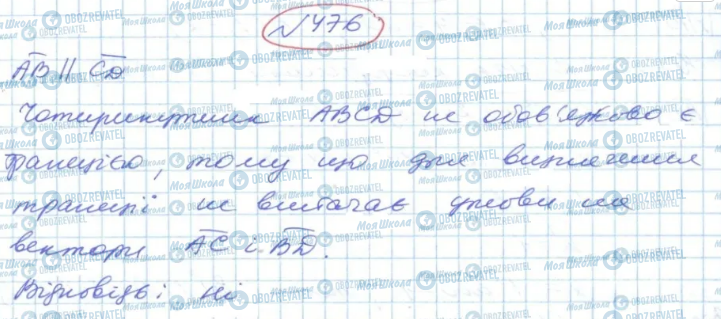 №476
AB || CD
Чотирикутник ABCD не обов'язково є
трапецією, тому що для визначення
трапеції не вистачає умови на
вектори AC і BD.
Відповідь: ні